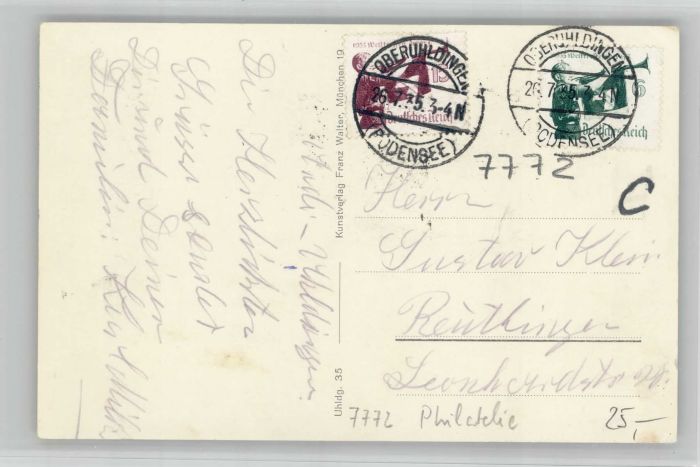 OBERUHLDINGEN
26.7.35.3-4N
(BODENSEE)
1935 Welt
15
Deutsches Reich
OBERUHLDINGEN
26.7.35.3-4N
(BODENSEE)
Deutsches Reich
7772
C
Herrn
Gustav Klein
Reutlingen
Leonhardstr.
7772 Philatelie
25,-
Kunstverlag Franz Walter, München 19
Uhldg. 35
Uhldingen.
Die Herzlichsten
Grüsse sendet
Dir und Deiner
Familie: